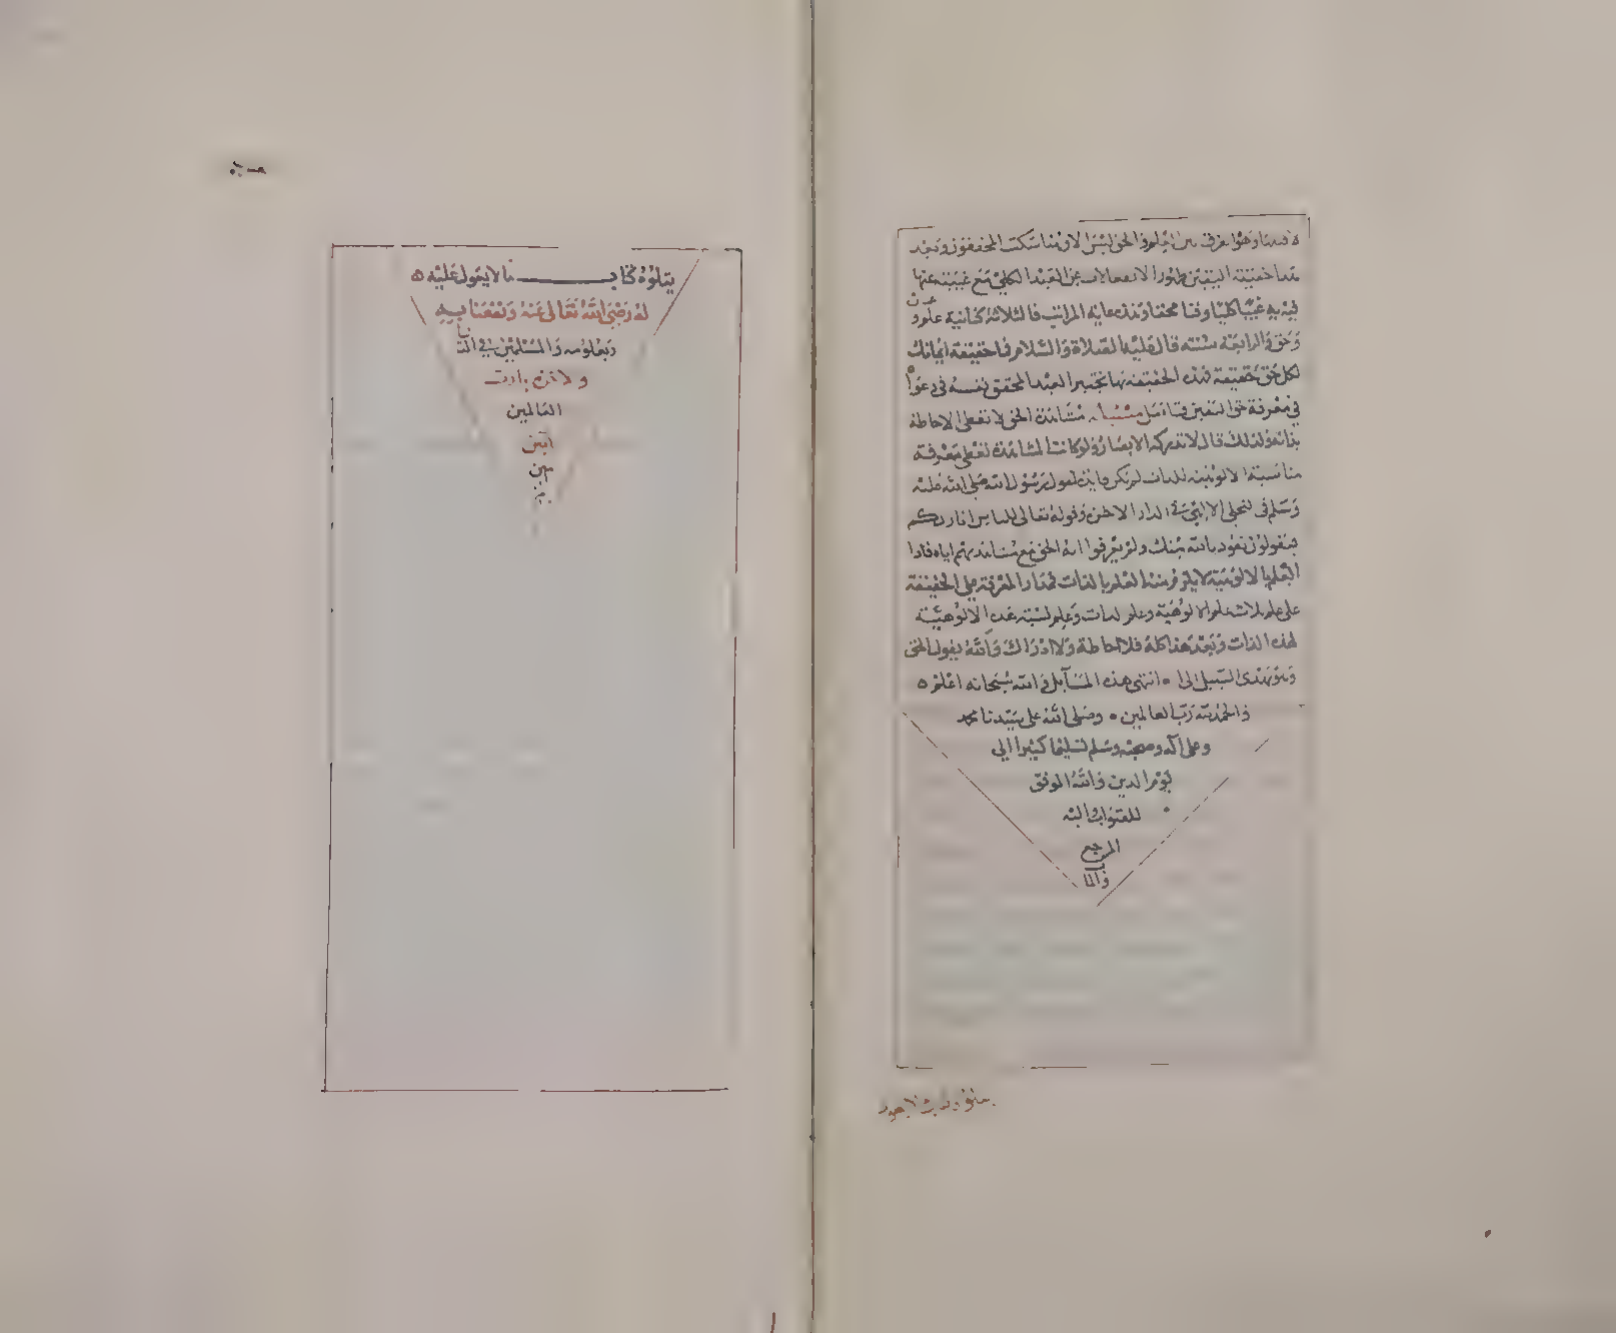 حق اليقين ظهور الانفعالات عن العبد الكلي مع غيبته عنها
فيه به غيبا كليا وفنا محققا وهذه غاية المراتب فالثلاثة كتابية علم وعين
وحق والرابعة سنته قال عليه الصلاة والسلام فما حقيقة ايمانك
لكل حق حقيقة فهذه الحقيقة بها يختبر العبد المحقق نفسه في دعواه
في معرفة حق اليقين مسئلة مشاهدة الحق لا تعطى الاحاطة
بذاته ولذلك قال لا تدركه الابصار ولو كانت المشاهدة تعطى معرفة
مناسبة الالوهية للذات لم يكن يقول رسول الله صلى الله عليه
وسلم في التجلى الالهي في الدار الاخرة وقوله تعالى للناس انا ربكم
فيقولون نعوذ بالله منك ولم يعرفوا انه الحق مع مشاهدتهم اياه فاذا
العلم بالالوهية لا يلزم منه العلم بالذات فمدار المعرفة على الحقيقة
على علم ثلاث علم الالوهية وعلم لذات وعلم نسبة هذه الالوهيته
لهذه الذات وبعد هذا كله فلا احاطة ولا ادراك والله يقول الحق
وهو يهدى السبيل انتهى هذه المسآيل والله سبحانه اعلم ه
والحمد لله رب العالمين وصلى الله على سيدنا محمد
وعلى اله وصحبه وسلم تسليما كثيرا الى
يوم الدين والله الموفق
للصواب واليه
المرجع
والمآب
يتلوه كتاب ما لا يعول عليه ه
له رضى الله تعالى عنه ونفعنا به
وبعلومه والمسلمين في الدنيا
والاخرة يا رب
العالمين
آمين